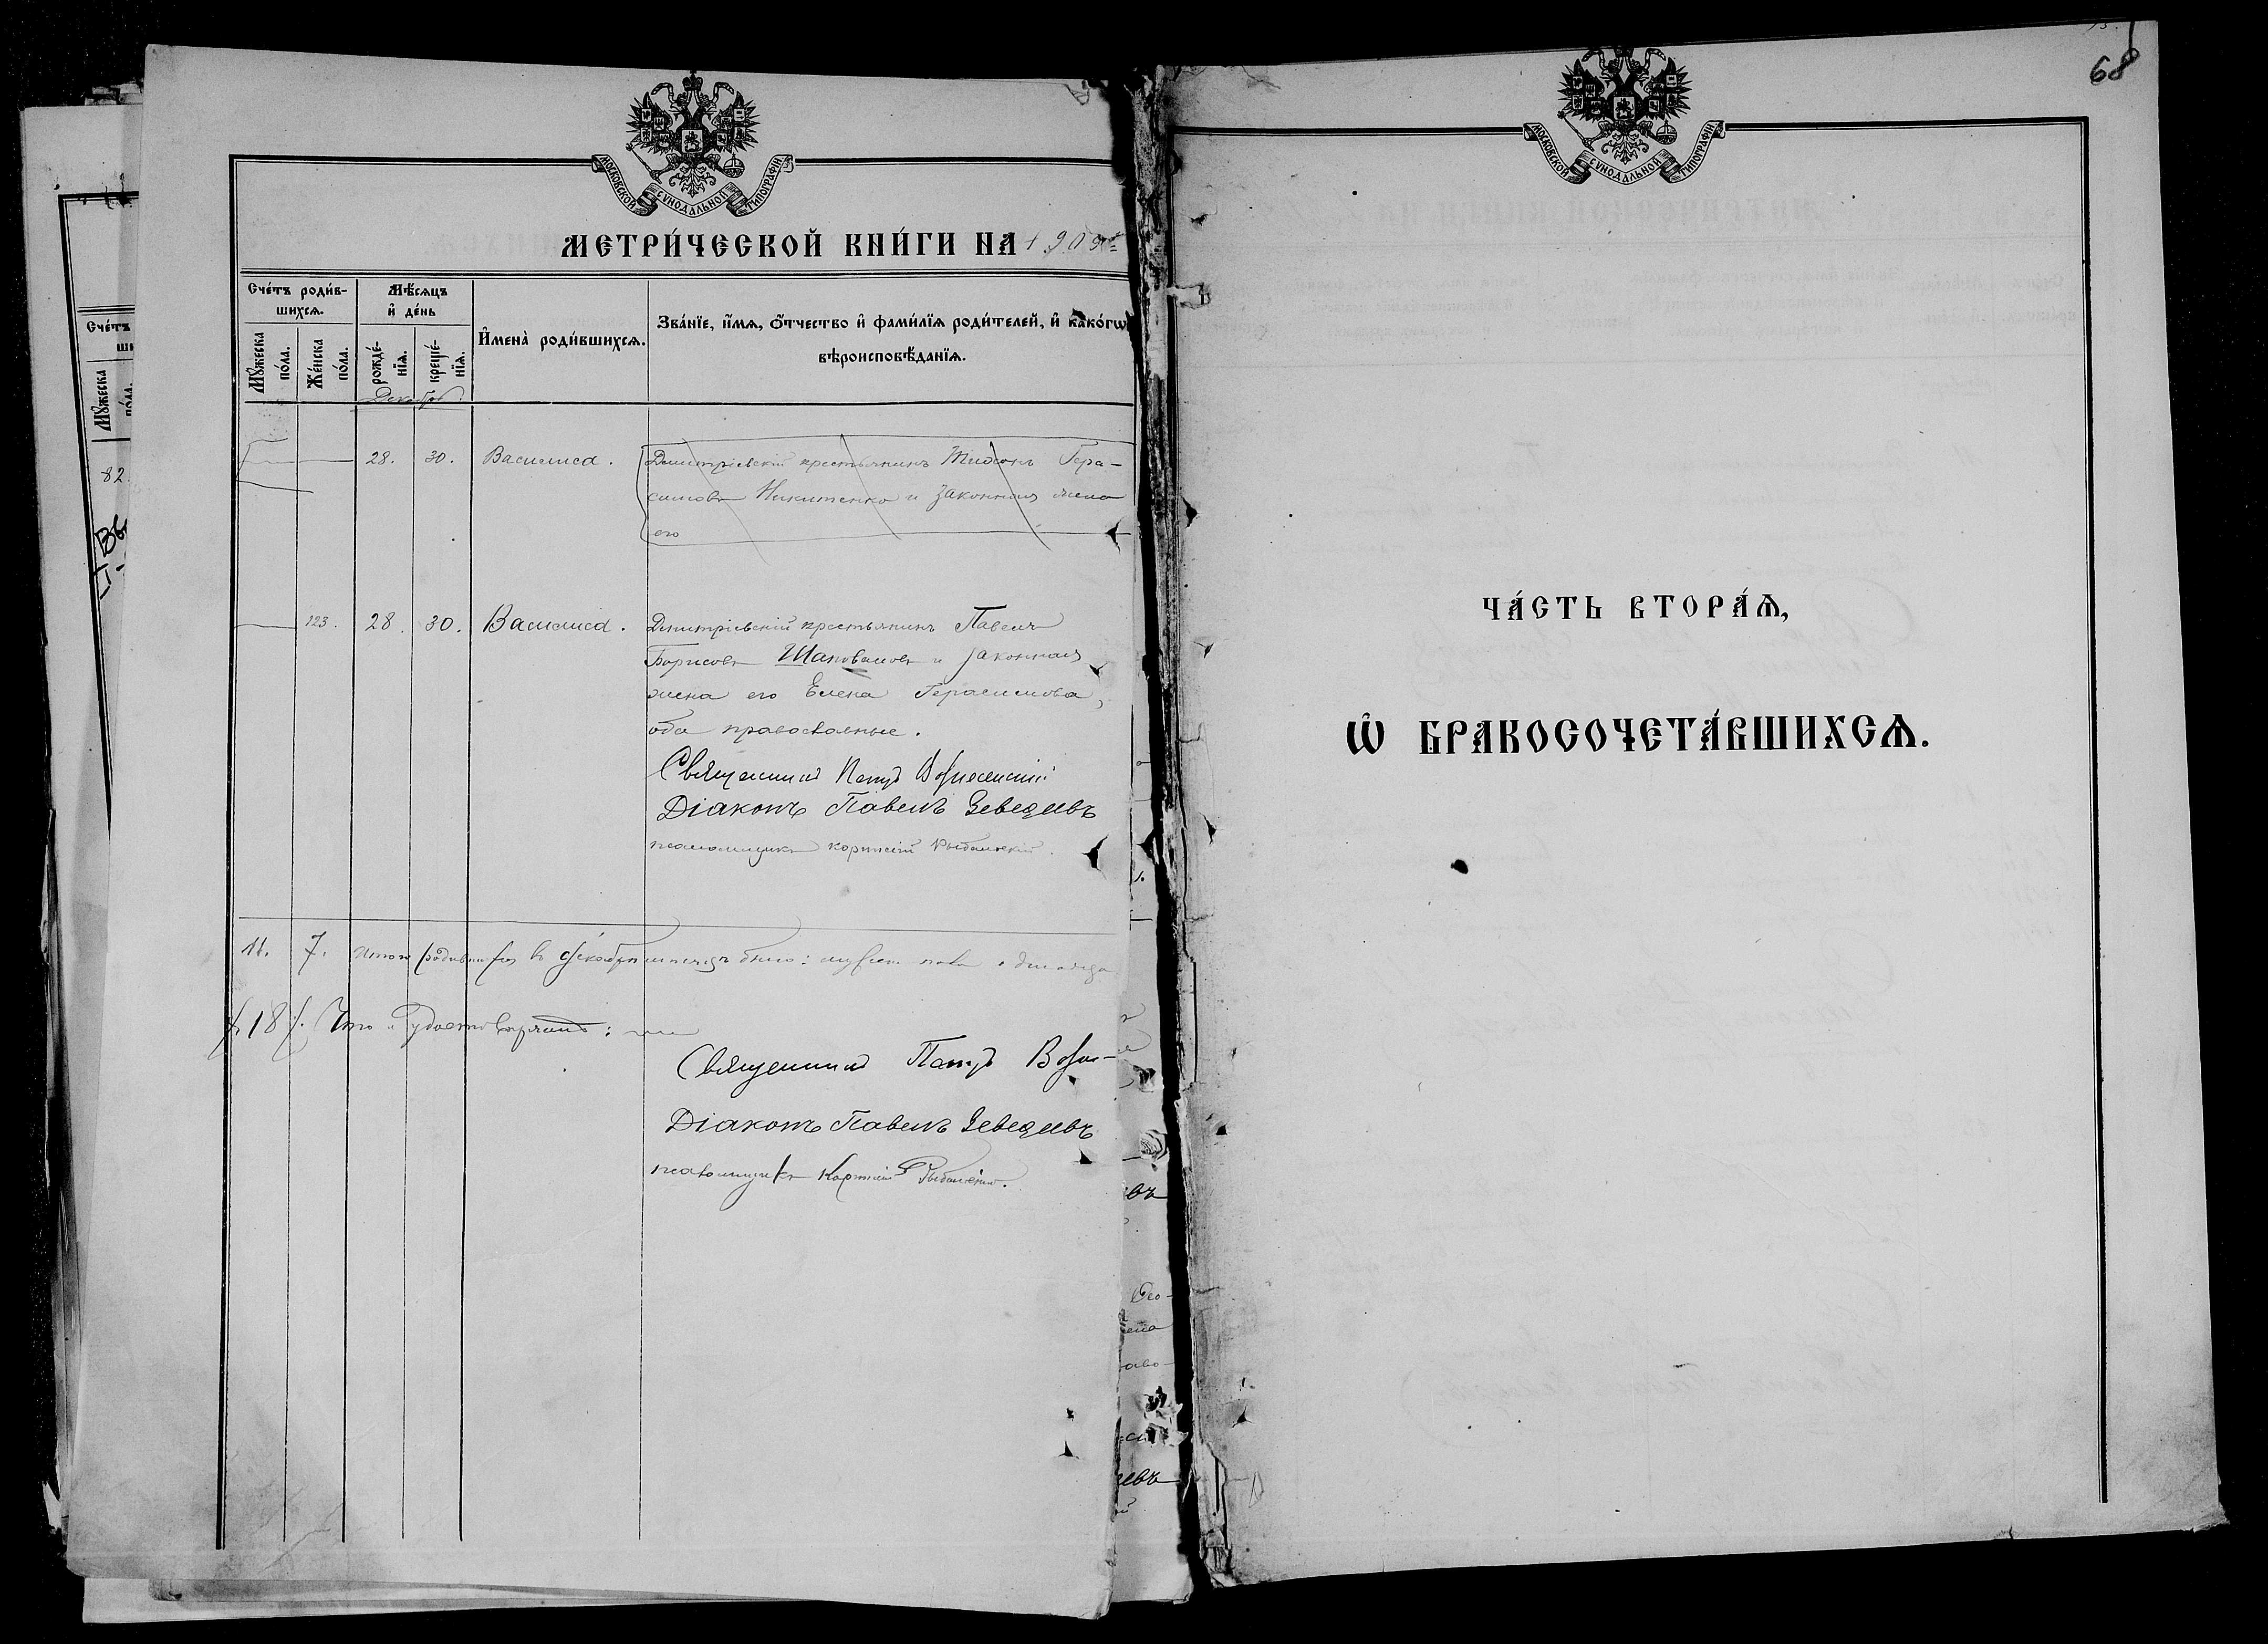 МОСКОВСКОЙ СѴНОДАЛЬНОЙ ТИПОГРАФІИ
МЕТРИ́ЧЕСКОЙ КНИ́ГИ НА 190
Сче́тъ роди́в-
шихсѧ.
Мꙋ́жеска
по́ла.
Же́нска
по́ла.
Мѣ́сѧцъ
и҆ де́нь
рожде́-
нїѧ.
креще́-
нїѧ.
Декабрь
И҆мена̀ роди́вшихсѧ.
Зва́нїе, и҆́мѧ, ѻ҆́тчество и҆ фами́лїѧ роди́телей, и҆ како́гѡ
вѣроисповѣ́данїѧ.
28. 30. Василиса. Димитріевскій крестьянинъ Гера-
симовъ Никитенко и законная жена
его
123. 28. 30. Василиса. Димитріевскій крестьянинъ Павелъ
Борисовъ Шаповаловъ и законная
жена его Елена Герасимова,
оба православные.
Священникъ Петръ Вознесенскій
Діаконъ Павелъ Зеведеевъ
псаломщикъ
11. 7. Итого родившихся въ декабрѣ мѣсяцѣ было: мужеска пола одиннадца
18. Что и удостовѣряемъ:
Священникъ Петръ Возне-
Діаконъ Павелъ Зеведеевъ
псаломщикъ
Сче́тъ
Мꙋ́жеска
по́ла.
82.
68
МОСКОВСКОЙ СѴНОДАЛЬНОЙ ТИПОГРАФІИ
ЧА́СТЬ ВТОРА́Ѧ,
Ѡ҆ БРАКОСОЧЕТА́ВШИХСѦ.